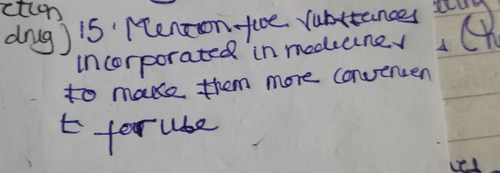 ction
drug) 15. Mention five substances
incorporated in medicines
to make them more convenien
t for use